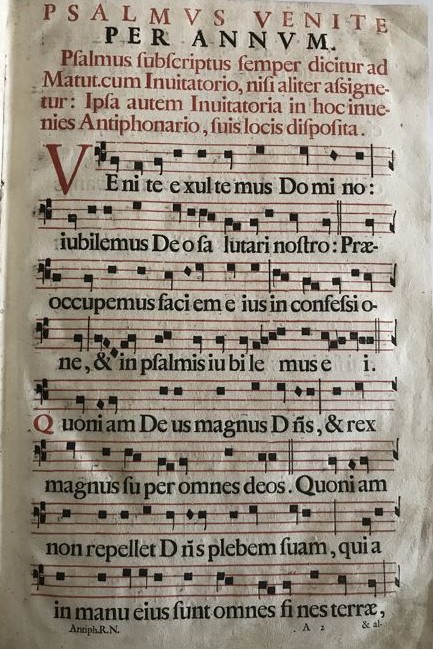 PSALMVS VENITE
PER ANNVM.
Pſalmus ſubſcriptus ſemper dicitur ad
Matut.cum Inuitatorio, niſi aliter aſsigne-
tur: Ipſa autem Inuitatoria in hoc inue-
nies Antiphonario, ſuis locis diſpoſita.
VE ni te e xul te mus Do mi no:
iubilemus De o ſa lutari noſtro: Præ-
occupemus faci em e ius in confeſsi o-
ne, & in pſalmis iu bi le mus e i.
Q uoni am De us magnus D ñs, & rex
magnus ſu per omnes deos. Quoni am
non repellet D ñs plebem ſuam, qui a
in manu eius ſunt omnes fi nes terræ,
Antiph.R.N. A 2 & al-